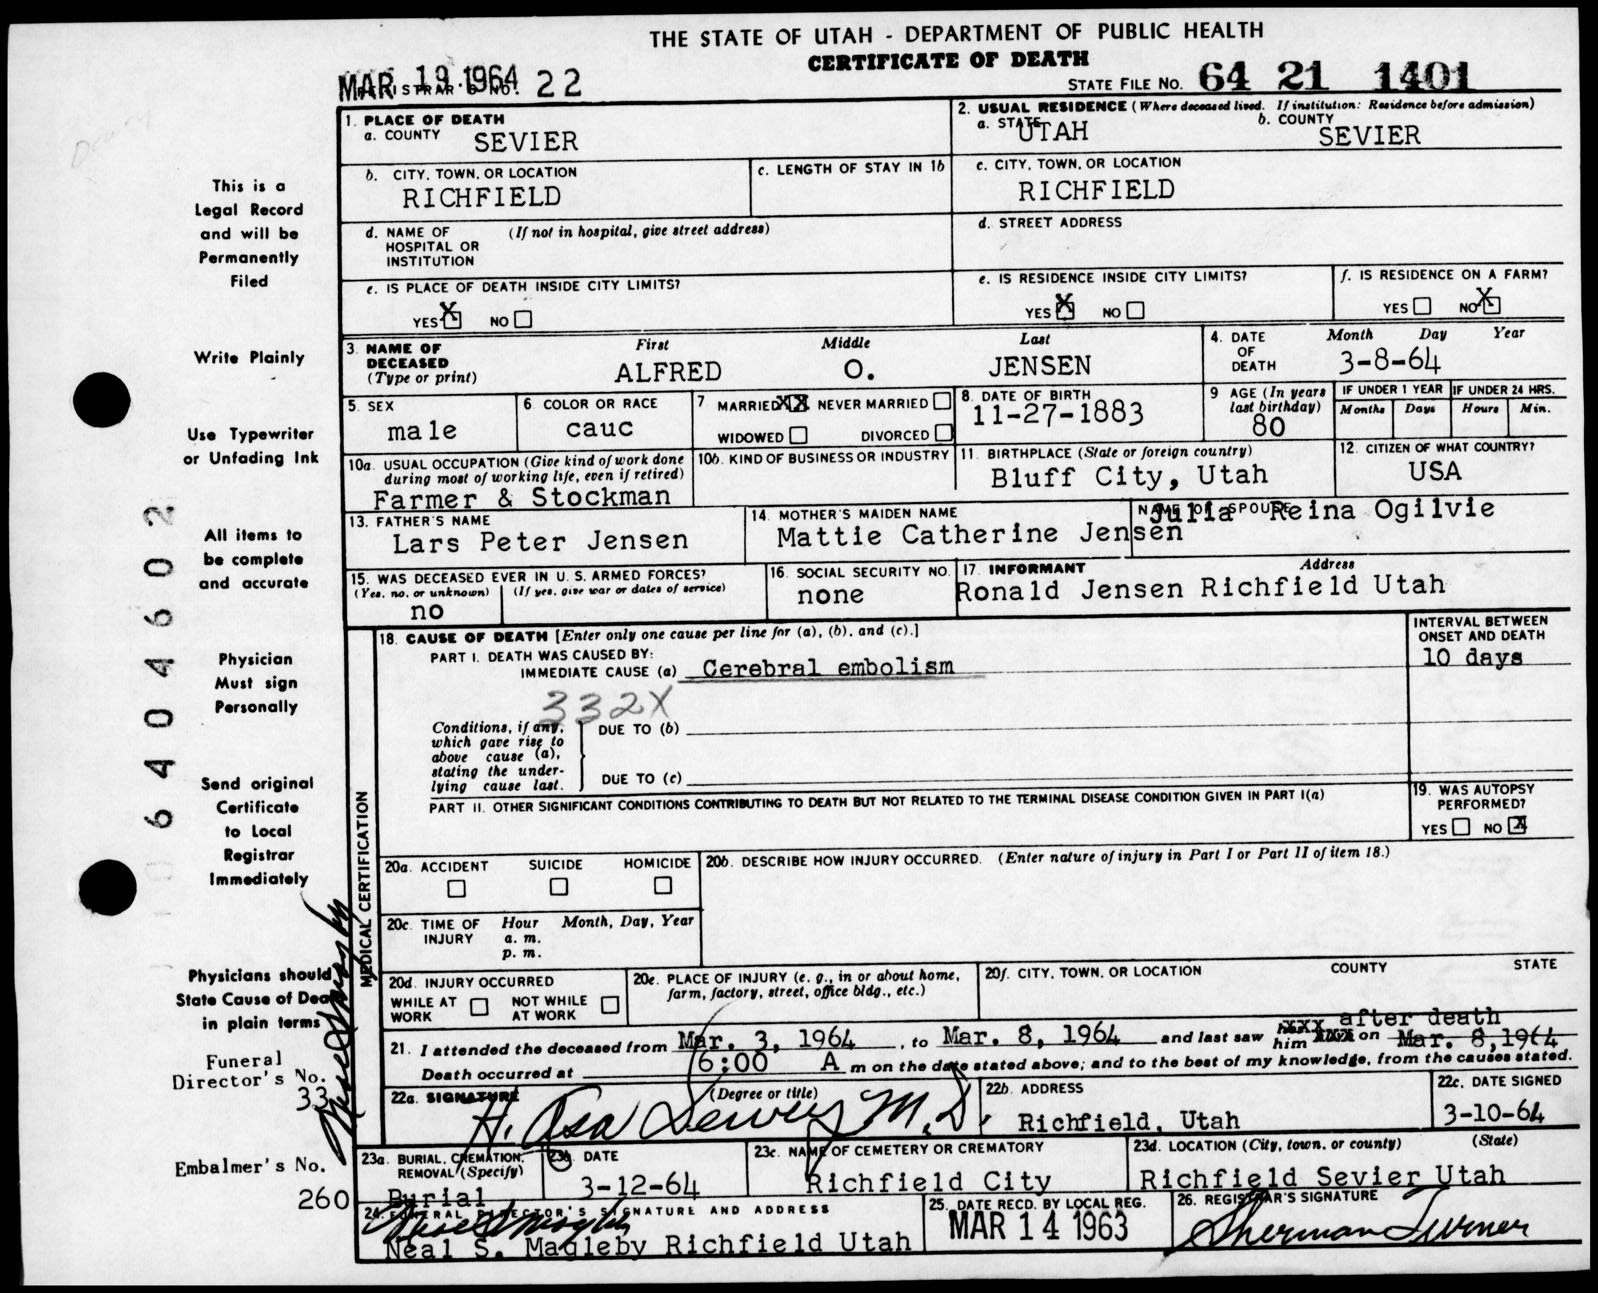 THE STATE OF UTAH - DEPARTMENT OF PUBLIC HEALTH
CERTIFICATE OF DEATH
MAR 19 1964 REGISTRAR'S NO. 22
STATE FILE NO. 64 21 1401
This is a
Legal Record
and will be
Permanently
Filed
Write Plainly
Use Typewriter
or Unfading Ink
All items to
be complete
and accurate
Physician
Must sign
Personally
Send original
Certificate
to Local
Registrar
Immediately
Physicians should
State Cause of Death
in plain terms
Funeral
Director's No.
33
Embalmer's No.
260
640 4602
1. PLACE OF DEATH
a. COUNTY SEVIER
2. USUAL RESIDENCE (Where deceased lived. If institution: Residence before admission)
a. STATE UTAH b. COUNTY SEVIER
b. CITY, TOWN, OR LOCATION RICHFIELD
c. LENGTH OF STAY IN 1b
c. CITY, TOWN, OR LOCATION RICHFIELD
d. NAME OF HOSPITAL OR INSTITUTION (If not in hospital, give street address)
d. STREET ADDRESS
e. IS PLACE OF DEATH INSIDE CITY LIMITS?
YES X NO
e. IS RESIDENCE INSIDE CITY LIMITS?
YES X NO
f. IS RESIDENCE ON A FARM?
YES NO X
3. NAME OF DECEASED (Type or print) First Middle Last
ALFRED O. JENSEN
4. DATE OF DEATH Month Day Year
3-8-64
5. SEX male
6. COLOR OR RACE cauc
7 MARRIED XX NEVER MARRIED
WIDOWED DIVORCED
8. DATE OF BIRTH 11-27-1883
9 AGE (In years last birthday) 80
IF UNDER 1 YEAR Months Days
IF UNDER 24 HRS. Hours Min.
10a. USUAL OCCUPATION (Give kind of work done during most of working life, even if retired)
Farmer & Stockman
10b. KIND OF BUSINESS OR INDUSTRY
11. BIRTHPLACE (State or foreign country)
Bluff City, Utah
12. CITIZEN OF WHAT COUNTRY?
USA
13. FATHER'S NAME
Lars Peter Jensen
14. MOTHER'S MAIDEN NAME
Mattie Catherine Jensen
NAME OF SPOUSE Julia Reina Ogilvie
15. WAS DECEASED EVER IN U. S. ARMED FORCES?
(Yes, no, or unknown) (If yes, give war or dates of service)
no
16. SOCIAL SECURITY NO.
none
17. INFORMANT Address
Ronald Jensen Richfield Utah
MEDICAL CERTIFICATION
18. CAUSE OF DEATH [Enter only one cause per line for (a), (b), and (c).]
INTERVAL BETWEEN ONSET AND DEATH
PART I. DEATH WAS CAUSED BY:
IMMEDIATE CAUSE (a) Cerebral embolism 10 days
332X
Conditions, if any, which gave rise to above cause (a), stating the underlying cause last.
DUE TO (b)
DUE TO (c)
PART II. OTHER SIGNIFICANT CONDITIONS CONTRIBUTING TO DEATH BUT NOT RELATED TO THE TERMINAL DISEASE CONDITION GIVEN IN PART I(a)
19. WAS AUTOPSY PERFORMED?
YES NO X
20a. ACCIDENT SUICIDE HOMICIDE
20b. DESCRIBE HOW INJURY OCCURRED. (Enter nature of injury in Part I or Part II of item 18.)
20c. TIME OF INJURY Hour Month, Day, Year
a. m.
p. m.
20d. INJURY OCCURRED
WHILE AT WORK NOT WHILE AT WORK
20e. PLACE OF INJURY (e. g., in or about home, farm, factory, street, office bldg., etc.)
20f. CITY, TOWN, OR LOCATION COUNTY STATE
21. I attended the deceased from Mar. 3, 1964, to Mar. 8, 1964 and last saw her him XXX XXX on after death Mar. 8, 1964
Death occurred at 6:00 A m on the date stated above; and to the best of my knowledge, from the causes stated.
22a. SIGNATURE (Degree or title)
H. Asa Dewey M.D.
22b. ADDRESS
Richfield, Utah
22c. DATE SIGNED
3-10-64
23a. BURIAL, CREMATION, REMOVAL (Specify)
Burial
23b. DATE
3-12-64
23c. NAME OF CEMETERY OR CREMATORY
Richfield City
23d. LOCATION (City, town, or county) (State)
Richfield Sevier Utah
24. FUNERAL DIRECTOR'S SIGNATURE AND ADDRESS
Neal S Magleby
Neal S. Magleby Richfield Utah
25. DATE RECD. BY LOCAL REG.
MAR 14 1963
26. REGISTRAR'S SIGNATURE
Sherman Turner
Neal S Magleby